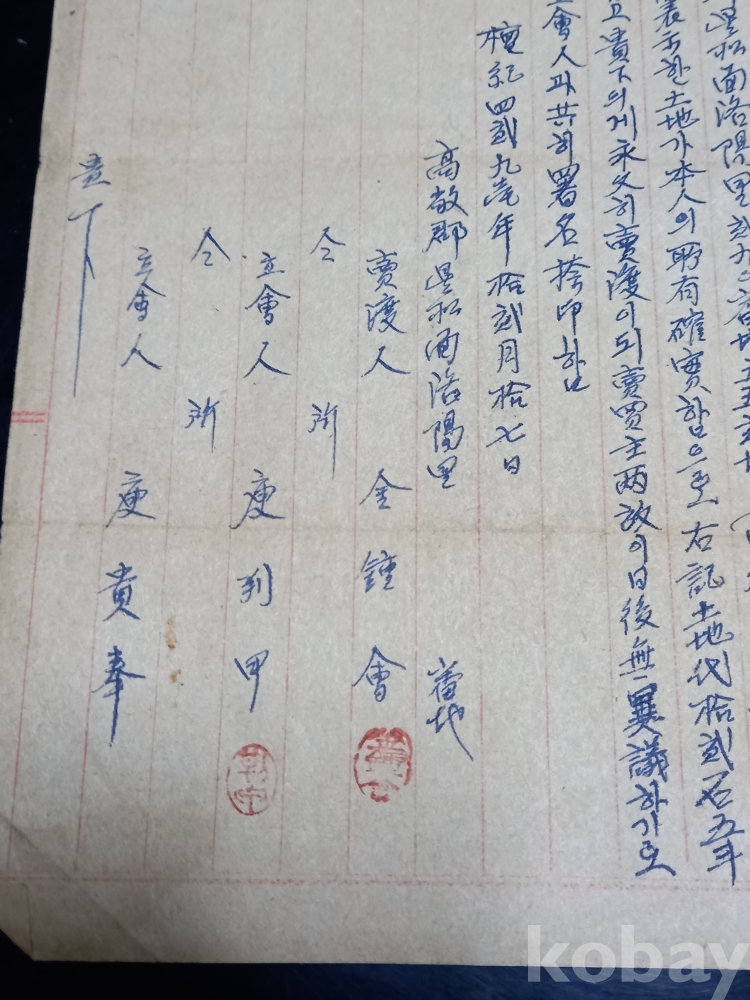 星松面洛陽里貳九
表示한土地가本人의所有確實함으로右記土地代拾貳石五斗
貴下의게永久히賣渡이되賣買主兩放이日後無異議하기로
會人과共히署名捺印함
檀紀四貳九壱年拾貳月拾七日
高敞郡星松面洛陽里 番地
賣渡人 金鍾會
仝 所
立會人 庾判甲
仝 所
立會人 庾貴奉
貴下
kobay